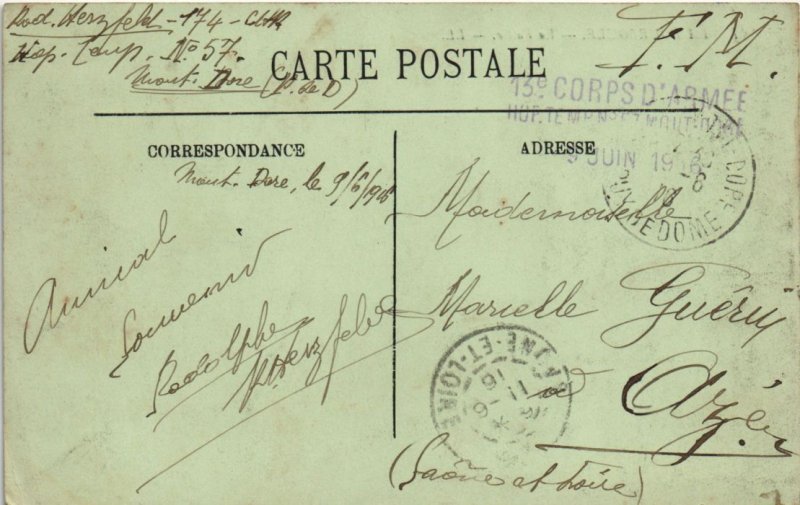 Rod. Herzfeld - 174 -
Hop. Temp. No 57.
Mont-Dore (P. de D)
F. M.
CARTE POSTALE
13e CORPS D'ARMÉE
9 JUIN 1916
PUY-DE-DOME
CORRESPONDANCE
Mont-Dore, le 9/6/1916
Amical
Souvenir
Rodolphe
Herzfeld
ADRESSE
Mademoiselle
Marcelle Guérin
à Azé
(Saône et Loire)
SAONE-ET-LOIRE
16
11 - 6